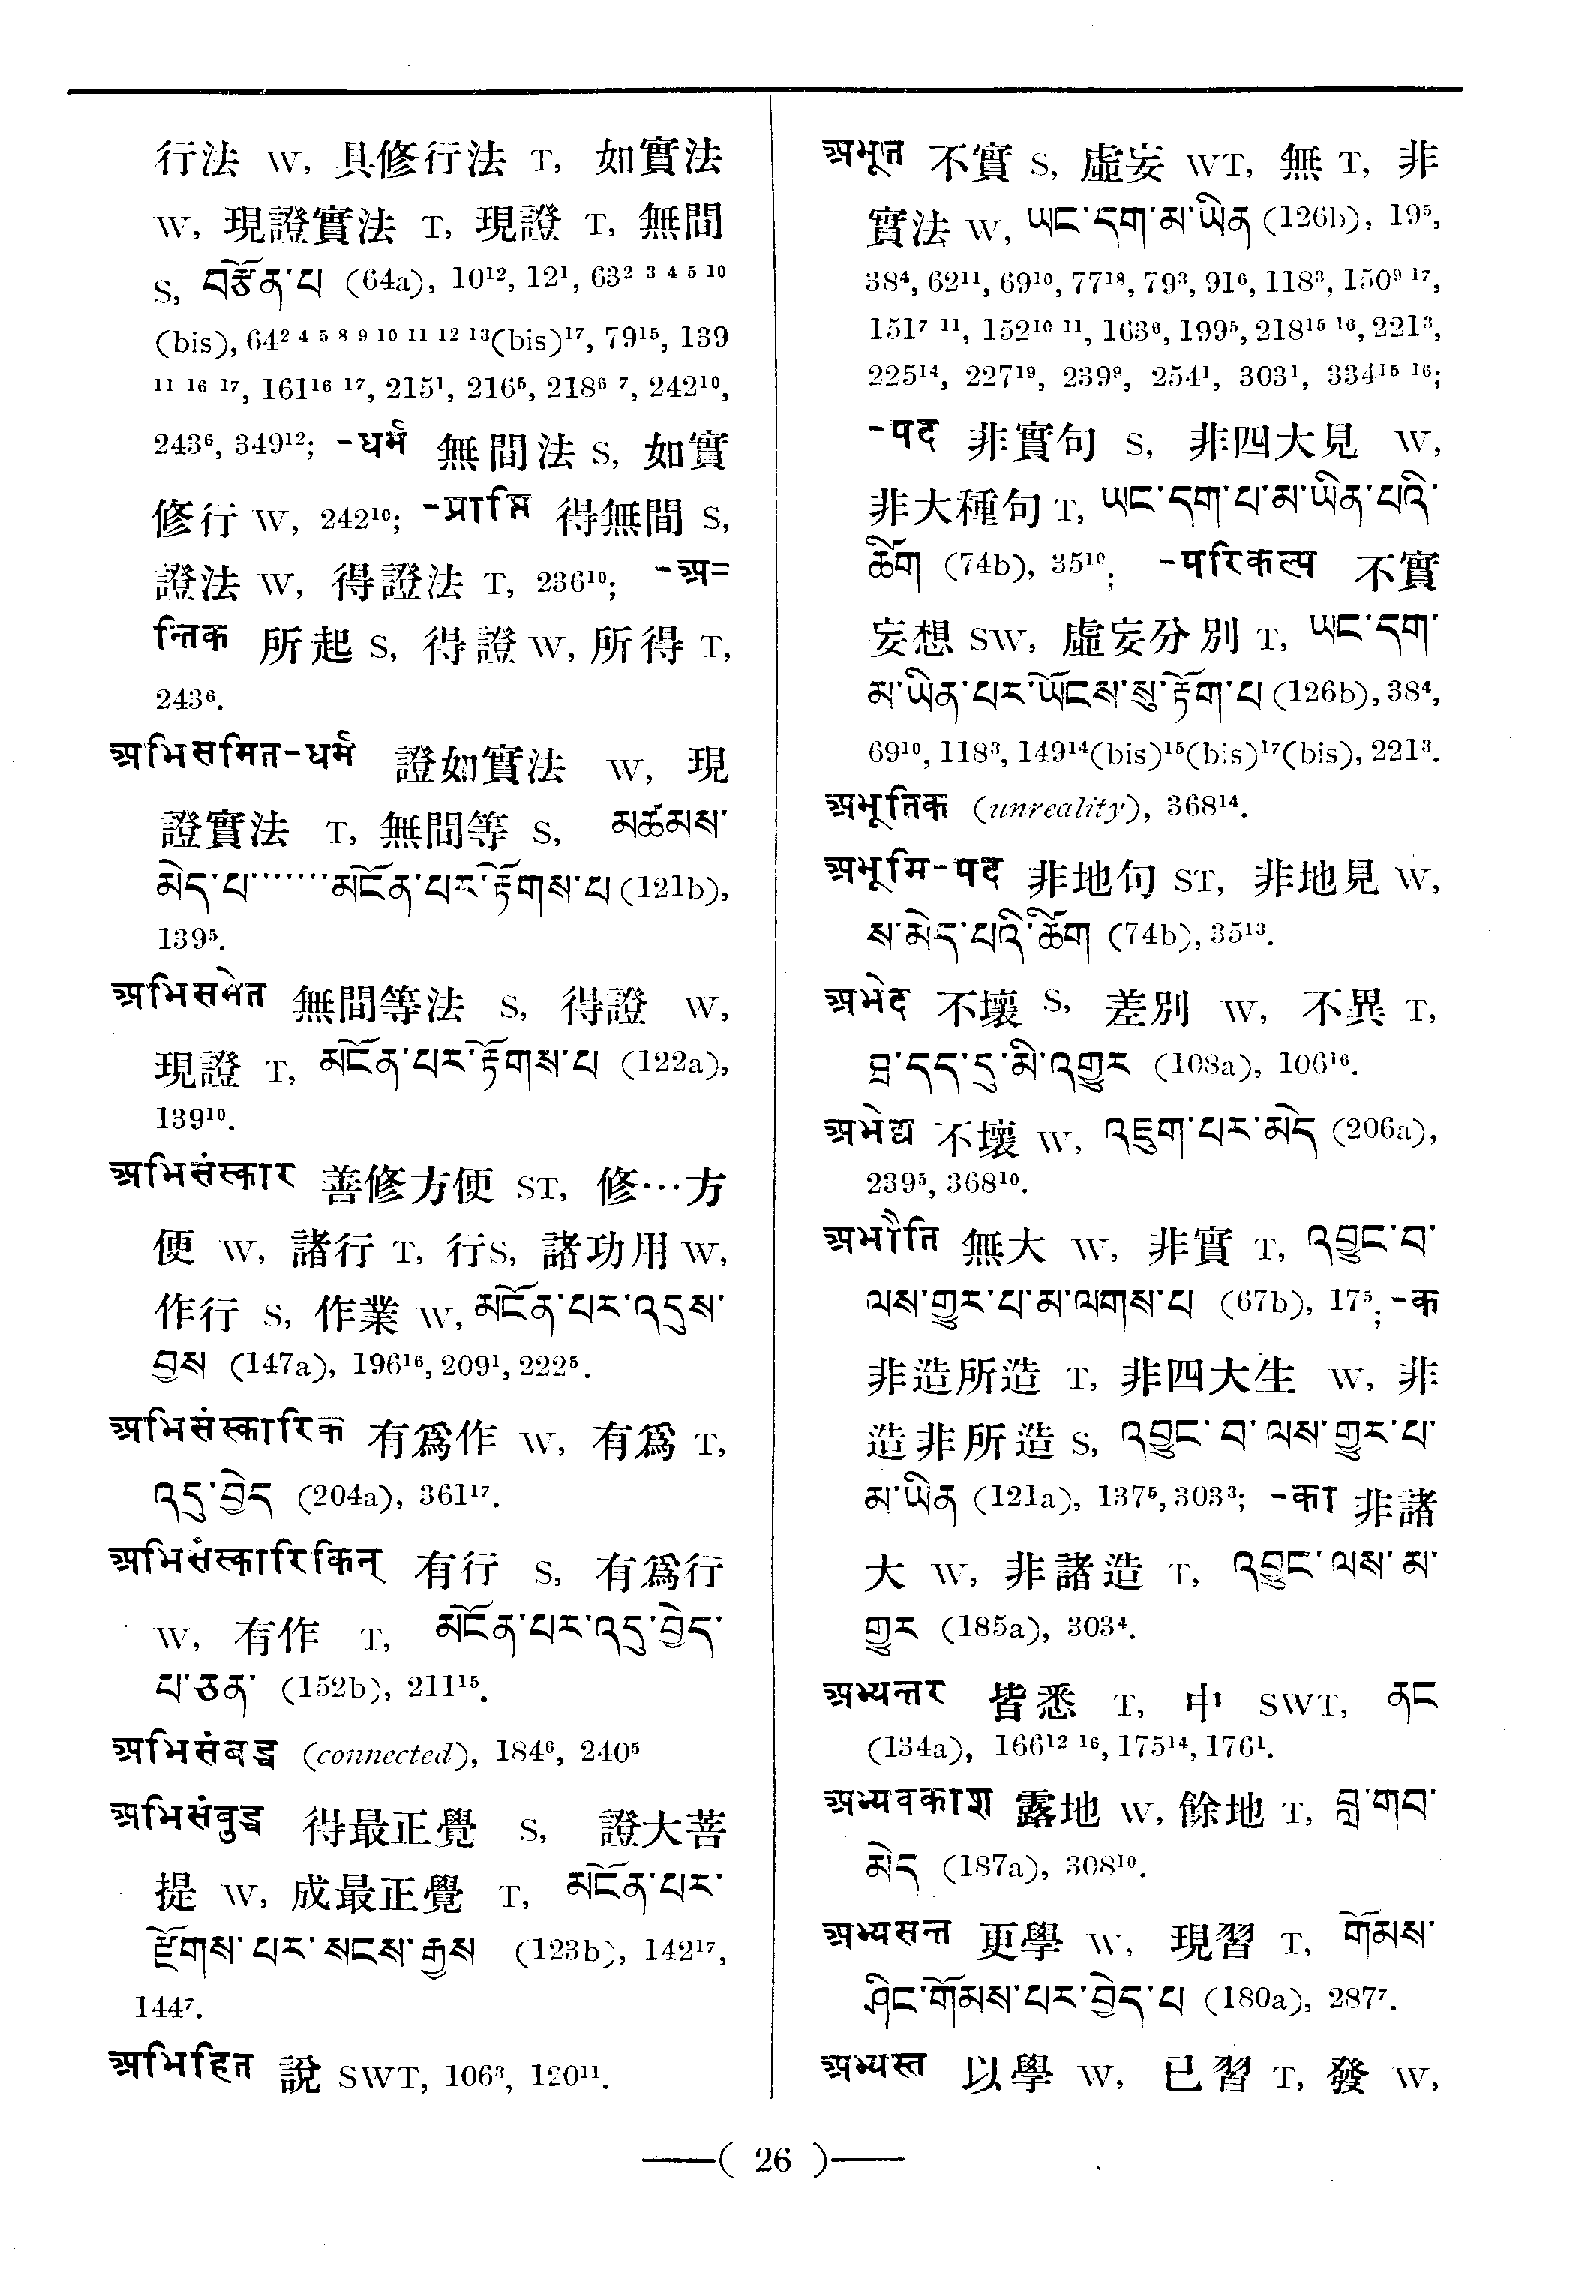 行法 W, 具修行法 T, 如實法
W, 現證實法 T, 現證 T, 無間
S, བརྩོན་པ (64a), 10¹², 12¹, 63² ³ ⁴ ⁵ ¹⁰
(bis), 64² ⁴ ⁵ ⁸ ⁹ ¹⁰ ¹¹ ¹² ¹³(bis)¹⁷, 79¹⁵, 139
¹¹ ¹⁶ ¹⁷, 161¹⁶ ¹⁷, 215¹, 216⁵, 218⁶ ⁷, 242¹⁰,
243⁶, 349¹²; -धर्म 無間法 S, 如實
修行 W, 242¹⁰; -प्राप्ति 得無間 S,
證法 W, 得證法 T, 236¹⁰; -अ=
न्तिक 所起 S, 得證 W, 所得 T,
243⁶.
अभिसमित-धर्म 證如實法 W, 現
證實法 T, 無間等 S, མཚམས་
མེད་པ་······མངོན་པར་རྟོགས་པ (121b),
139⁵.
अभिसमेत 無間等法 S, 得證 W,
現證 T, མངོན་པར་རྟོགས་པ (122a),
139¹⁰.
अभिसंस्कार 善修方便 ST, 修…方
便 W, 諸行 T, 行S, 諸功用 W,
作行 S, 作業 W, མངོན་པར་འདུས་
བྱས (147a), 196¹⁶, 209¹, 222⁵.
अभिसंस्कारिक 有爲作 W, 有爲 T,
འདུ་བྱེད (204a), 361¹⁷.
अभिसंस्कारिकिन् 有行 S, 有爲行
W, 有作 T, མངོན་པར་འདུ་བྱེད་
པ་ཅན་ (152b), 211¹⁵.
अभिसंबद्ध (connected), 184⁶, 240⁵
अभिसंबुद्ध 得最正覺 S, 證大菩
提 W, 成最正覺 T, མངོན་པར་
རྫོགས་པར་སངས་རྒྱས (123b), 142¹⁷,
144⁷.
अभिहित 說 SWT, 106³, 120¹¹.
अभूत 不實 S, 虛妄 WT, 無 T, 非
實法 W, ཡང་དག་མ་ཡིན (126b), 19⁵,
38⁴, 62¹¹, 69¹⁰, 77¹⁸, 79³, 91⁶, 118³, 150⁹ ¹⁷,
151⁷ ¹¹, 152¹⁰ ¹¹, 163⁶, 199⁵, 218¹⁵ ¹⁶, 221³,
225¹⁴, 227¹⁹, 239⁹, 254¹, 303¹, 334¹⁵ ¹⁶;
-पद 非實句 S, 非四大見 W,
非大種句 T, ཡང་དག་པ་མ་ཡིན་པའི་
ཚིག (74b), 35¹⁰; -परिकल्प 不實
妄想 SW, 虛妄分別 T, ཡང་དག་
མ་ཡིན་པར་ཡོངས་སུ་རྟོག་པ (126b), 38⁴,
69¹⁰, 118³, 149¹⁴(bis)¹⁵(bis)¹⁷(bis), 221³.
अभूतिक (unreality), 368¹⁴.
अभूमि-पद 非地句 ST, 非地見 W,
ས་མེད་པའི་ཚིག (74b), 35¹³.
अभेद 不壞 S, 差別 W, 不異 T,
ཐ་དད་དུ་མི་འགྱུར (108a), 106¹⁶.
अभेद्य 不壞 W, འཇུག་པར་མེད (206a),
239⁵, 368¹⁰.
अभौति 無大 W, 非實 T, འབྱུང་བ་
ལས་གྱུར་པ་མ་ལགས་པ (67b), 17⁵; -क
非造所造 T, 非四大生 W, 非
造非所造 S, འབྱུང་བ་ལས་གྱུར་པ་
མ་ཡིན (121a), 137⁵, 303³; -का 非諸
大 W, 非諸造 T, འབྱུང་ལས་མ་
གྱུར (185a), 303⁴.
अभ्यन्तर 皆悉 T, 中 SWT, ནང
(134a), 166¹² ¹⁶, 175¹⁴, 176¹.
अभ्यवकाश 露地 W, 餘地 T, བླ་གབ་
མེད (187a), 308¹⁰.
अभ्यसन्त 更學 W, 現習 T, གོམས་
ཤིང་གོམས་པར་བྱེད་པ (180a), 287⁷.
अभ्यस्त 以學 W, 已習 T, 發 W,
—( 26 )—